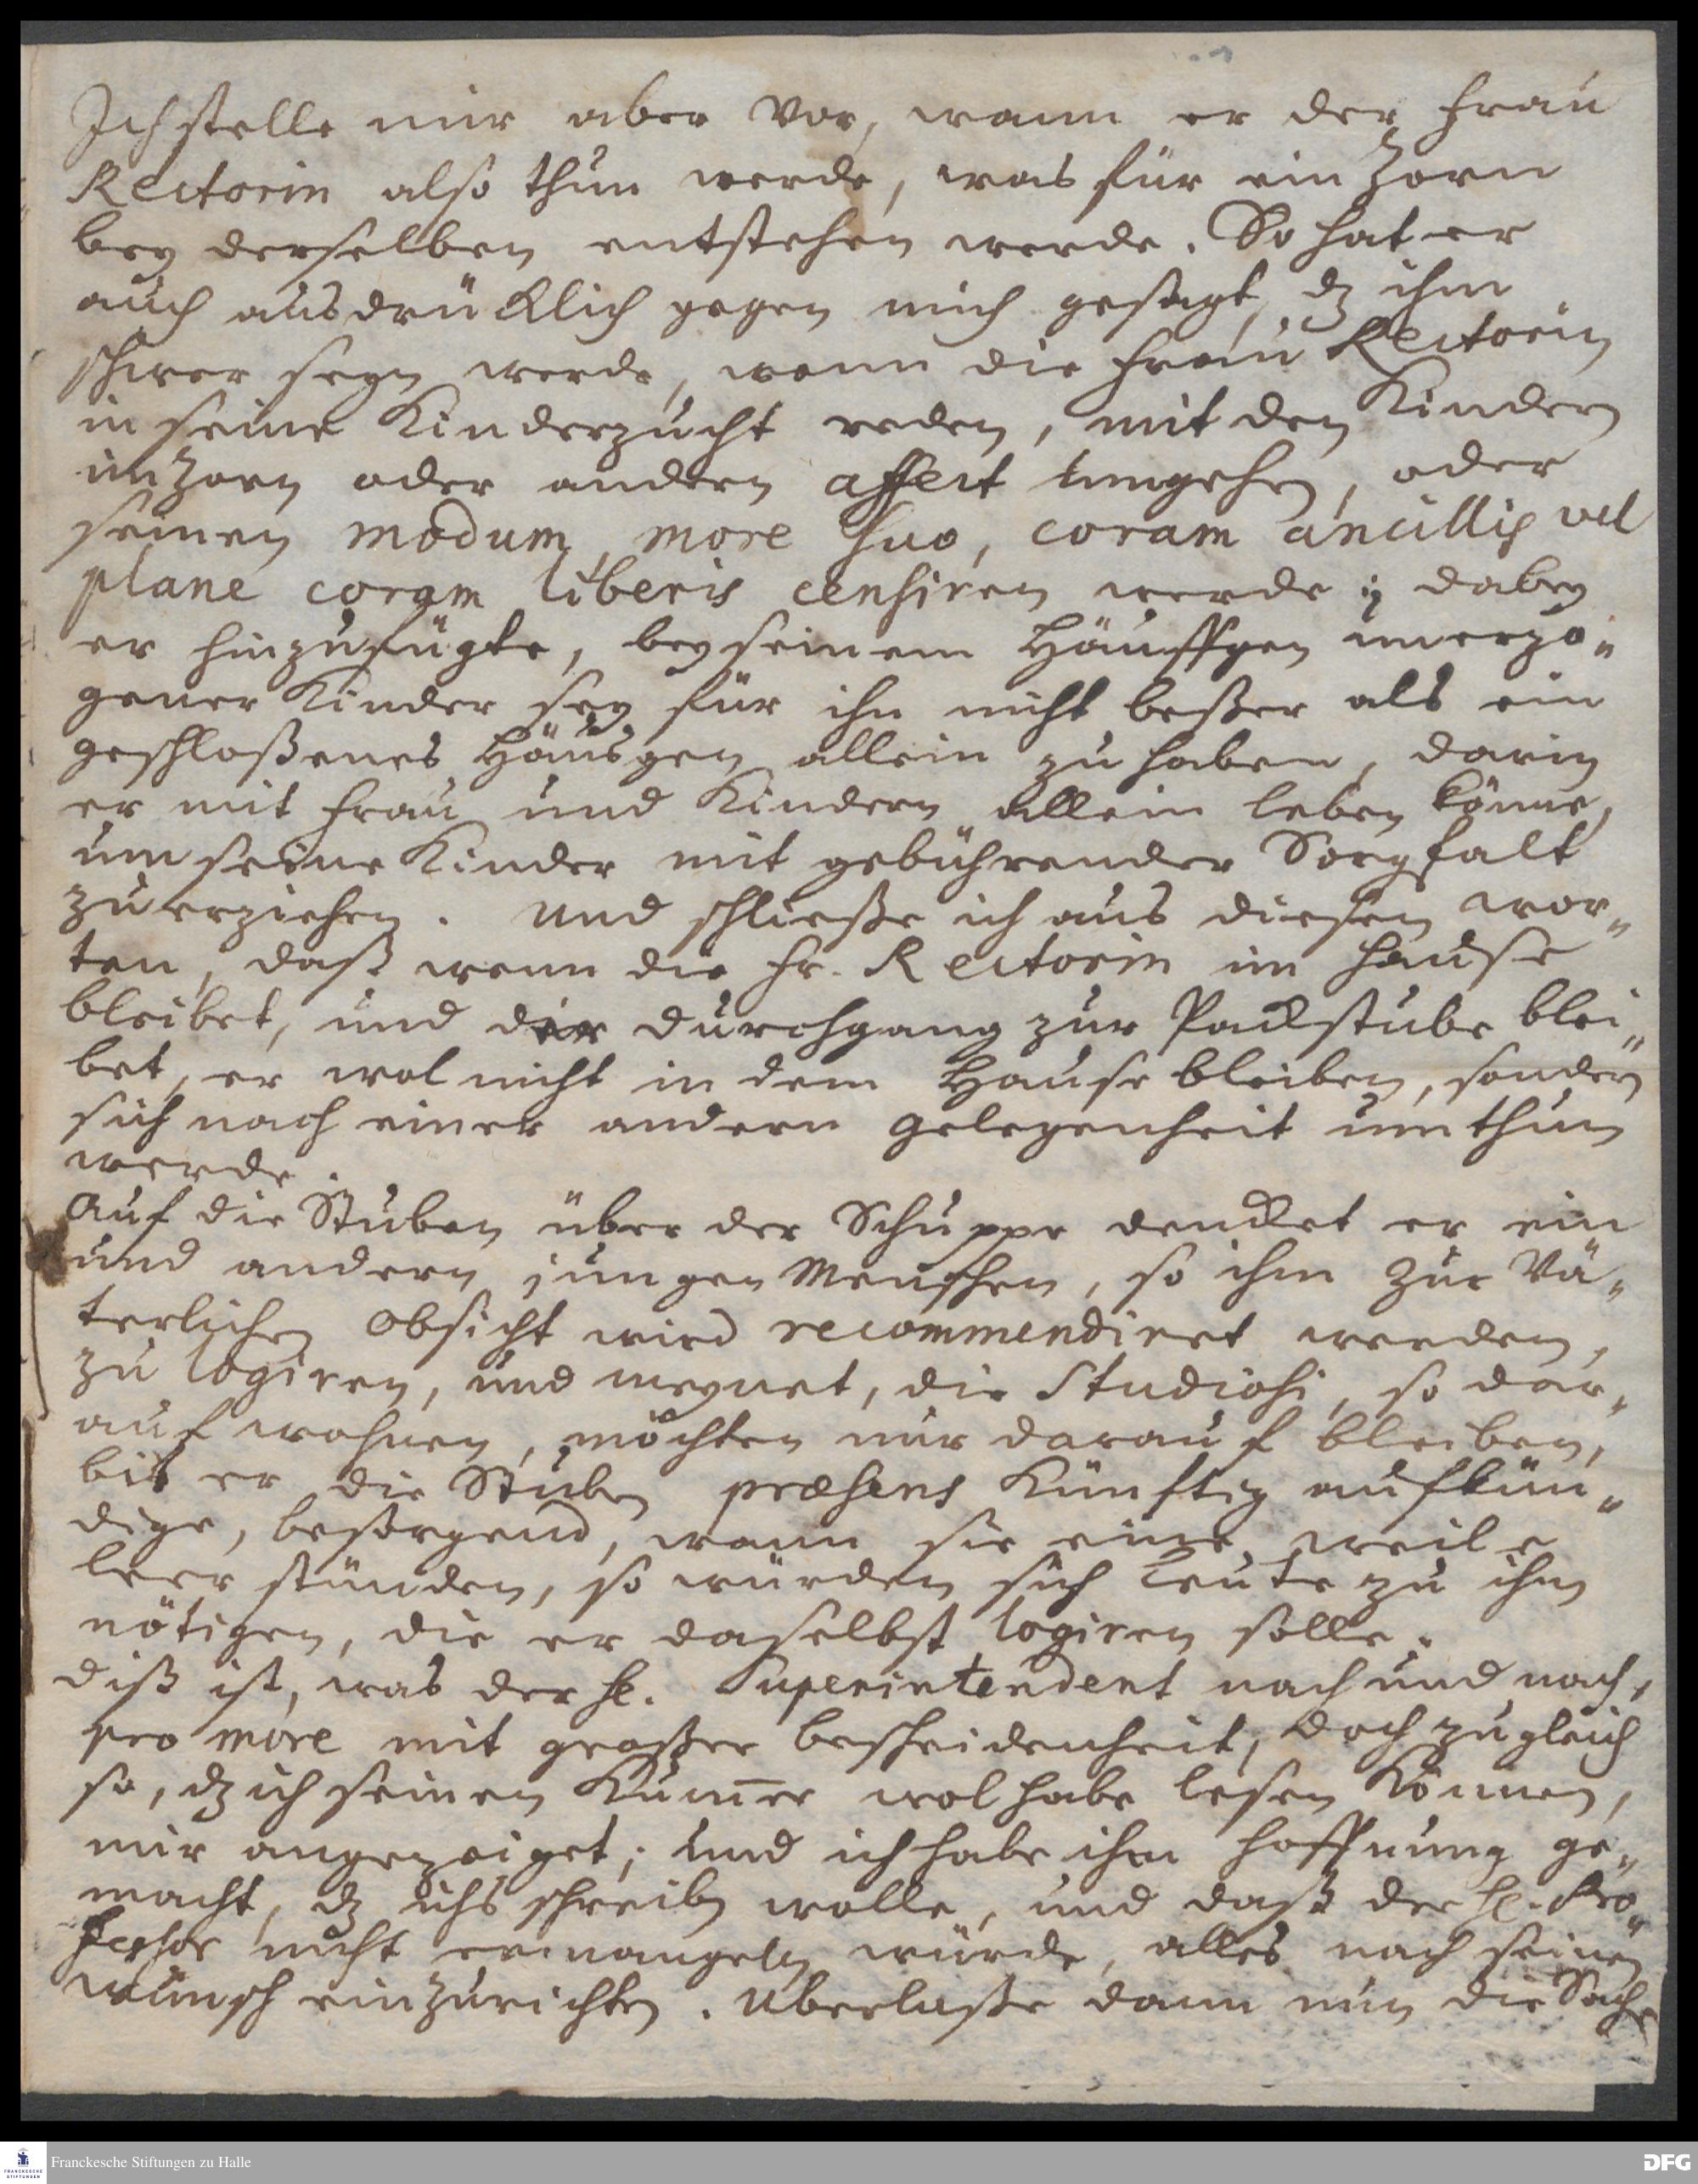 Ich stelle mir aber vor, wann er der Frau
Rectorin also thun werde, was für ein Zorn
bey derselben entstehen werde. So hat er
auch ausdrücklich gegen mich gesagt, dz ihm
schwer seyn werde, wenn die Frau Rectorin
in seine Kinderzucht reden, mit den Kindern
im Zorn oder andern affect umgehen, oder
seinen modum, more suo, coram ancillis vel
plane coram liberis censiren werde; dabey
er hinzufügte, bey seinem Häuffgen unerzo„
gener Kinder sey für ihn nicht beßer als ein
geschloßenes Häusgen allein zu haben, darin
er mit Frau und Kindern allein leben könne,
um seine Kinder mit gebührender Sorgfalt
zu erziehen. Und schließe ich aus diesen wor„
ten, daß wenn die Fr. Rectorin im Hause
bleibet, und der durchgang zur Packstube blei„
bet, er wol nicht in dem Hause bleiben, sondern
sich nach einer andern gelegenheit umthun
werde.
Auf die Stuben über der Schuppe dencket er ein
und andern jungen Menschen, so ihm zur Vä„
terlichen Obsicht wird recommendiret werden,
zu logiren, und meynet, die Studiosi, so dar„
auf wohnen, möchten nur darauf bleiben,
bis er die Stuben præsens künftig aufkün„
dige, besorgend, wann sie eine weile
leer stünden, so würden sich Leute zu ihm
nötigen, die er daselbst logiren solle.
Diß ist, was der H. Superintendent nach und nach,
pro more mit großer bescheidenheit, doch zugleich
so, dz ich seinen Kum̄er wol habe lesen können,
mir angezeiget; und ich habe ihm Hoffnung ge„
macht, dz ichs schreiben wolle, und daß der H. Pro„
fessor nicht ermangeln würde, alles nach seinen
wunsch einzurichten. Uberlaße dann nun die Sache
Franckesche Stiftungen zu Halle
FRANCKESCHE STIFTUNGEN
DFG